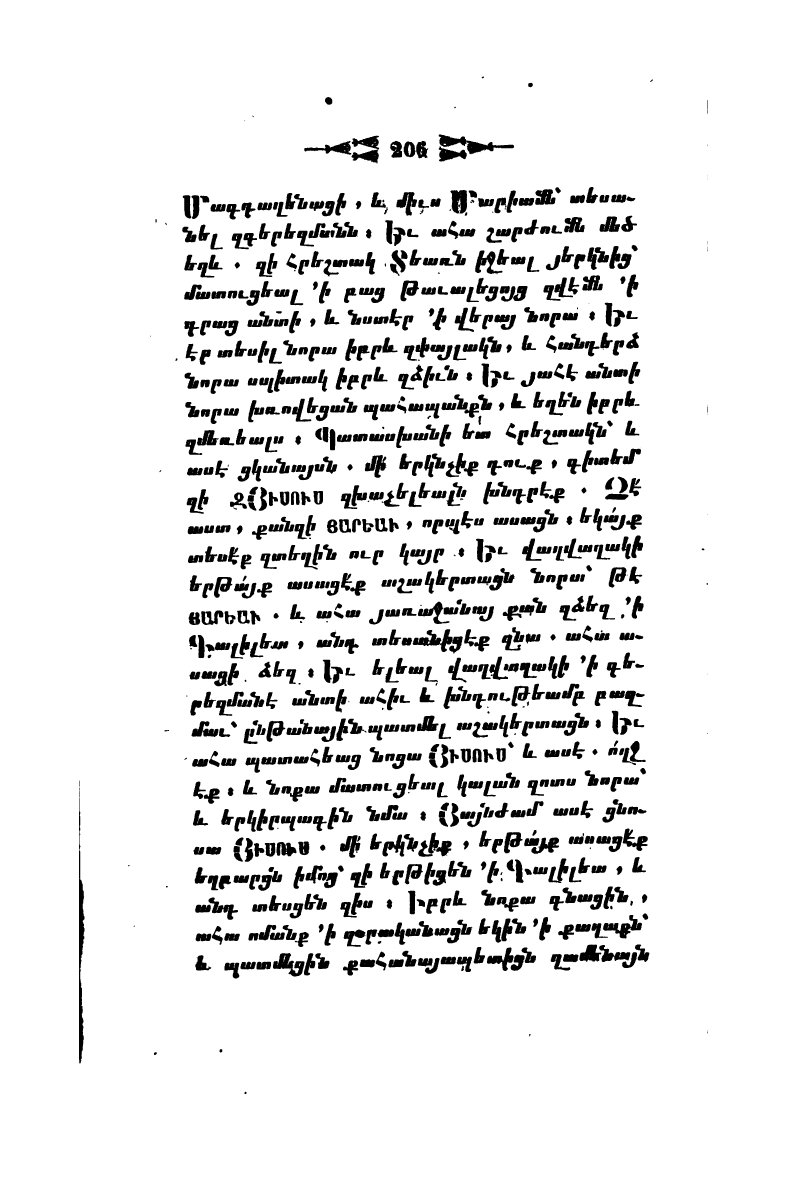 206
Մագդաղենացի , և միւս Մարիամն՝ տեսա-
նել զգերեզմանն ։ Եւ ահա շարժումն մեծ
եղև . զի Հրեշտակ Տեառն իջեալ յերկնից՝
մատուցեալ ՚ի բաց թաւալեցոյց զվէմն ՚ի
դրաց անտի , և նստէր ՚ի վերայ նորա ։ Եւ
էր տեսիլ նորա իբրև զփայլակն , և հանդերձ
նորա սպիտակ իբրև զձիւն ։ Եւ յահէ անտի
նորա խռովեցան պահապանքն , և եղեն իբրև
զմեռեալս ։ Պատասխանի ետ Հրեշտակն՝ և
ասէ ցկանայսն . մի՛ երկնչիք դուք , գիտեմ
զի ԶՅԻՍՈՒՍ զխաչելեալն խնդրէք . Չէ
աստ , քանզի ՅԱՐԵԱՒ , որպէս ասացն ։ եկա՛յք
տեսէք զտեղին ուր կայր ։ Եւ վաղվաղակի
երթա՛յք ասացէք աշակերտացն նորա՝ թէ
ՅԱՐԵԱՒ . և ահա յառաջանայ քան զձեզ ՚ի
Գալիլեա , անդ տեսանիցէք զնա . ահա ա-
սացի ձեզ ։ Եւ ելեալ վաղվաղակի ՚ի գե-
րեզմանէ անտի ահիւ և խնդութեամբ բազ-
մաւ՝ ընթանային պատմել աշակերտացն ։ Եւ
ահա պատահեաց նոցա ՅԻՍՈՒՍ՝ և ասէ . ո՛ղջ
էք ։ և նոքա մատուցեալ կալան զոտս նորա՝
և երկիրպագին նմա ։ Յայնժամ ասէ ցնո-
սա ՅԻՍՈՒՍ . մի՛ երկնչիք , երթա՛յք ասացէք
եղբարցն իմոց՝ զի երթիցեն ՚ի Գալիլեա , և
անդ տեսցեն զիս ։ Իբրև նոքա գնացին ,
ահա ոմանք ՚ի զօրականացն եկին ՚ի քաղաքն՝
և պատմեցին քահանայապետիցն զամենայն